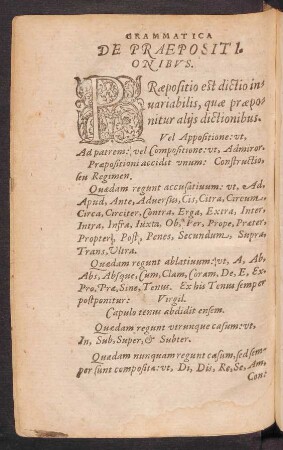 GRAMMATICA
DE PRAEPOSITI
ONIBVS.
PRæpositio est dictio in-
uariabilis, quæ præpo-
nitur alijs dictionibus.
Vel Appositione: vt,
Ad patrem: vel Compositione: vt, Admiror.
Præpositioni accidit vnum: Constructio,
seu Regimen.
Quædam regunt accusatiuum: vt, Ad,
Apud, Ante, Aduersus, Cis, Citra, Circum,
Circa, Circiter, Contra, Erga, Extra, Inter,
Intra, Infra, Iuxta, Ob, Per, Prope, Præter,
Propter, Post, Penes, Secundum, Supra,
Trans, Vltra.
Quædam regunt ablatiuum: vt, A, Ab,
Abs, Absque, Cum, Clam, Coram, De, E, Ex,
Pro, Præ, Sine, Tenus. Ex his Tenus semper
postponitur: Virgil.
Capulo tenus abdidit ensem.
Quædam regunt vtrunque casum: vt,
In, Sub, Super, & Subter.
Quædam nunquam regunt casum, sed sem-
per sunt composita: vt, Di, Dis, Re, Se, Am,
Con: